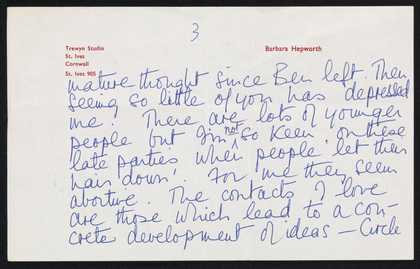 3
Trewyn Studio
St. Ives
Cornwall
St. Ives 905
Barbara Hepworth
mature thought since Ben left. Then
seeing so little of you has depressed
me! There are lots of younger
people but I'm not so keen on these
late parties when people 'let their
hair down'. For me they seem
abortive. The contacts I love
are those which lead to a con-
crete development of ideas — Circle